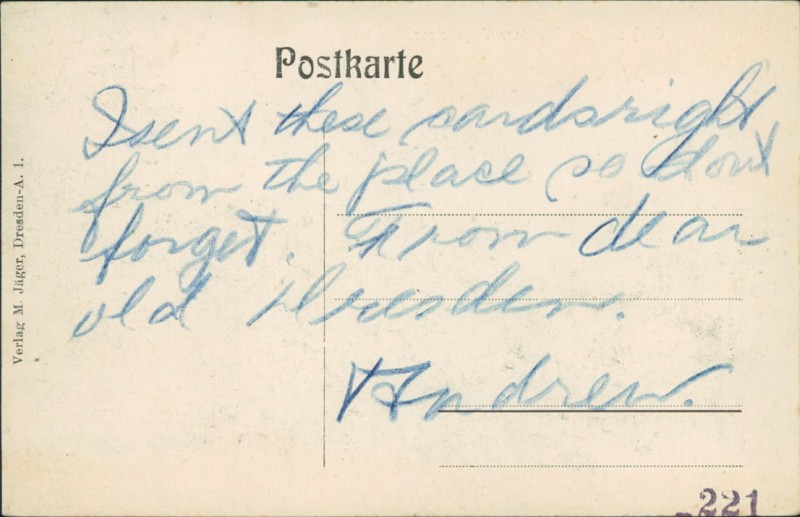 Postkarte
I sent these cards right
from the place so dont
forget. From dear
old Dresden.
Andrew.
Verlag M. Jäger, Dresden-A. 1.
221